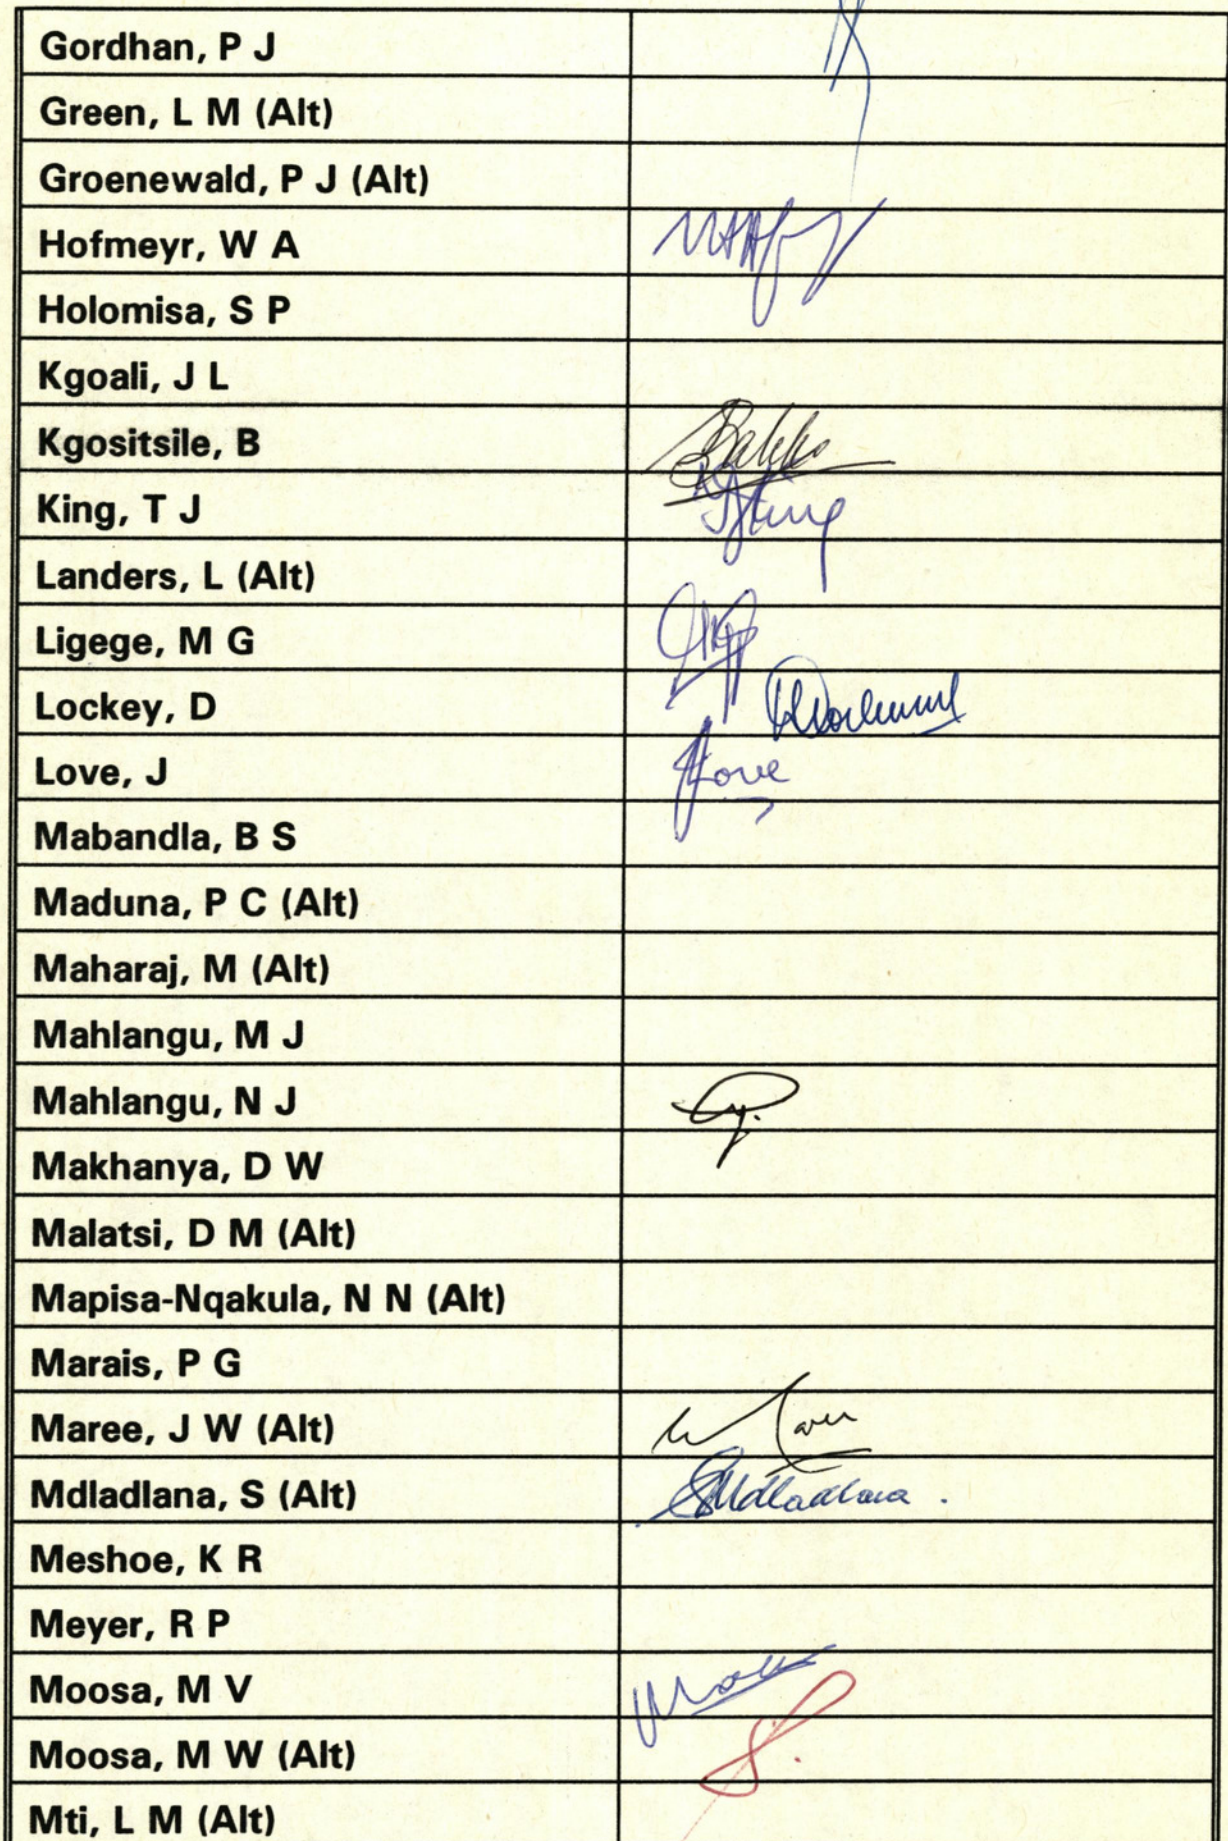 Gordhan, P J
Green, L M (Alt)
Groenewald, P J (Alt)
Hofmeyr, W A
Holomisa, S P
Kgoali, J L
Kgositsile, B
King, T J
Landers, L (Alt)
Ligege, M G
Lockey, D
Love, J
Love
Mabandla, B S
Maduna, P C (Alt)
Maharaj, M (Alt)
Mahlangu, M J
Mahlangu, N J
Makhanya, D W
Malatsi, D M (Alt)
Mapisa-Nqakula, N N (Alt)
Marais, P G
Maree, J W (Alt)
Mdladlana, S (Alt)
SMdladlana.
Meshoe, K R
Meyer, R P
Moosa, M V
Moosa, M W (Alt)
Mti, L M (Alt)